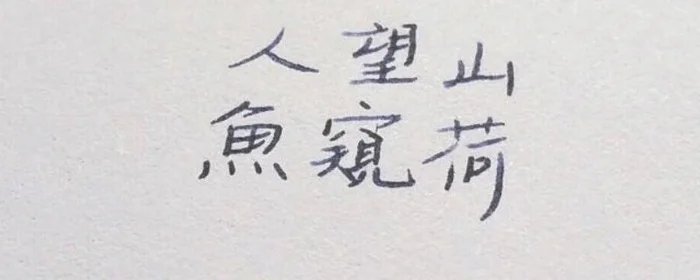 人望山
魚窺荷